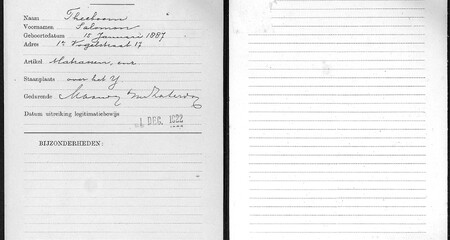 Naam Theeboom
Voornamen Salomon
Geboortedatum 12 Januari 1887
Adres 1e Vogelstraat 17
Artikel Matrassen, enz
Staanplaats over het Y
Gedurende Maandag t/m Zaterdag
Datum uitreiking legitimatiebewijs 1 DEC. 1922
BIJZONDERHEDEN: